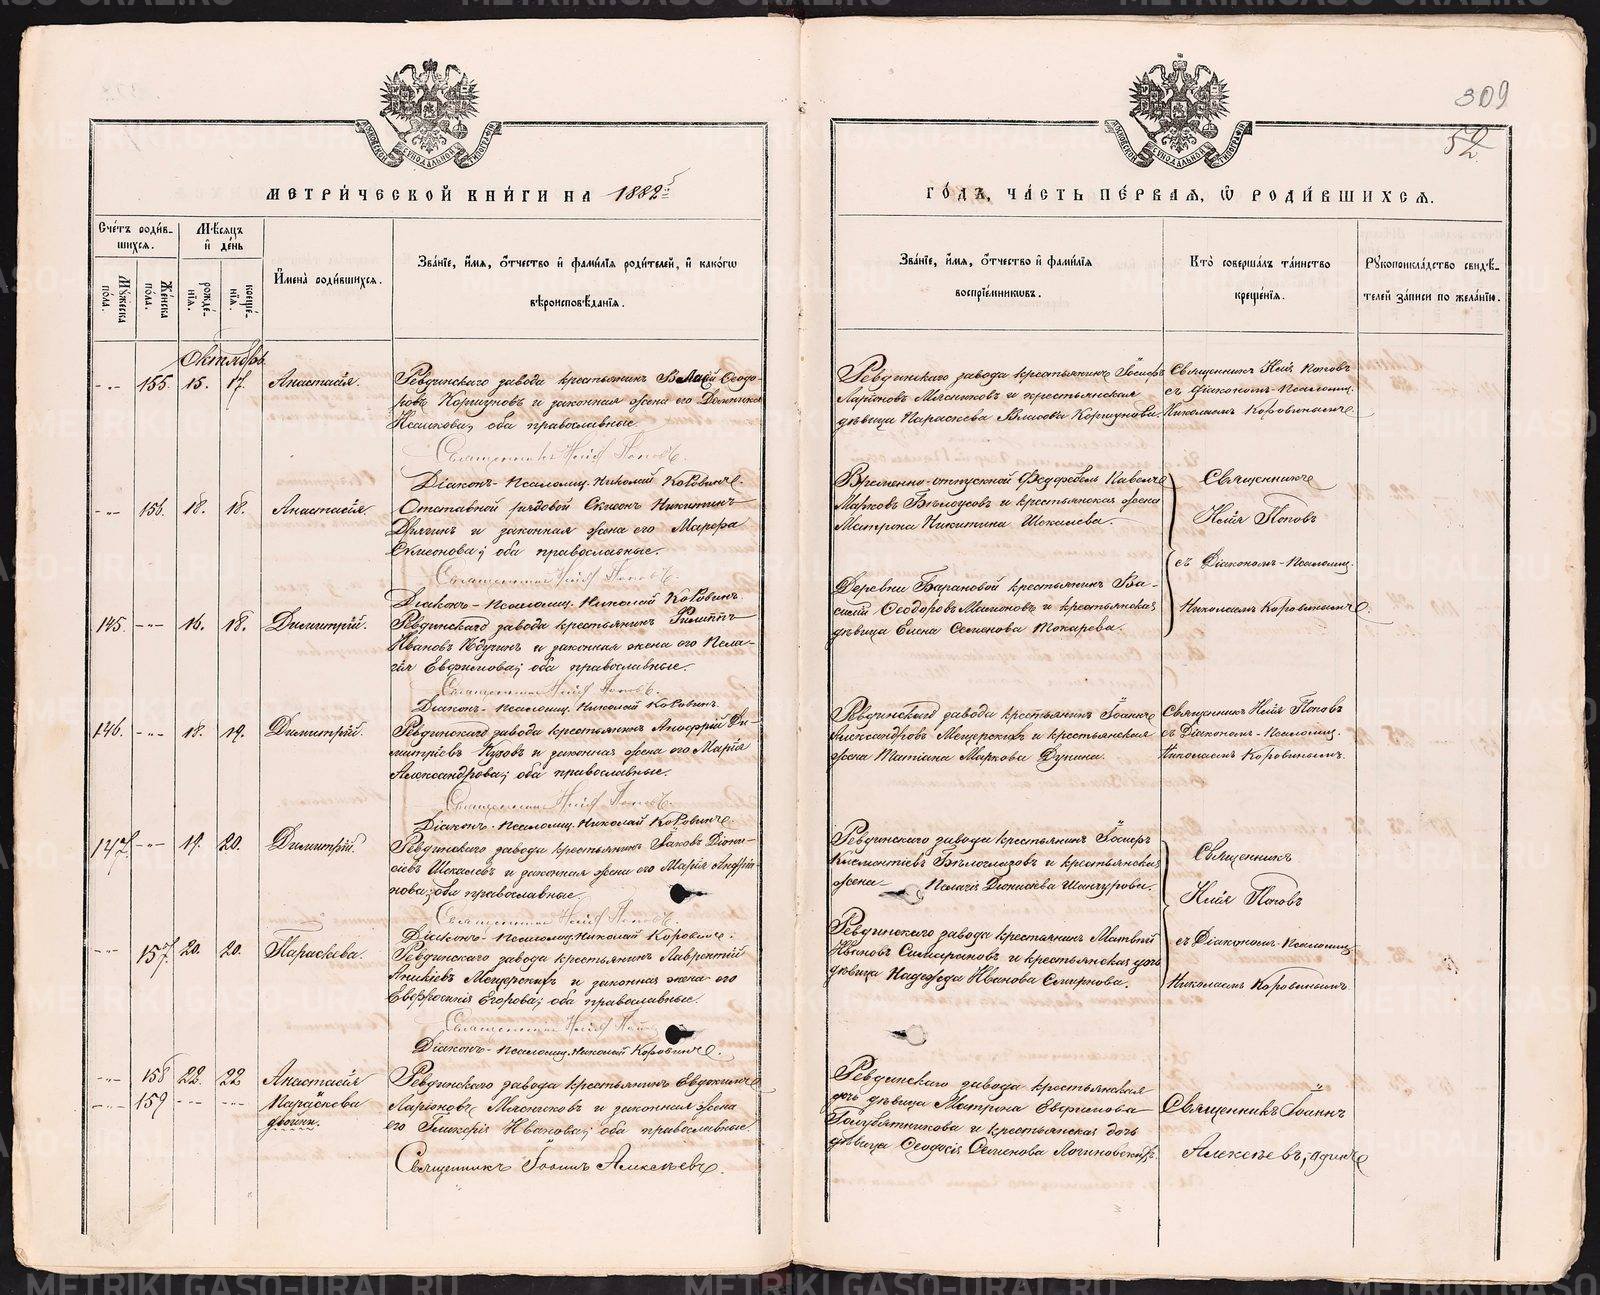 309
52
МЕТРИ́ЧЕСКОЙ КНИ́ГИ НА 1882й
ГО́ДЪ, ЧА́СТЬ ПЕ́РВАЯ, Ѽ РОДИ́ВШИХСЯ.
Сче́тъ роди́в-
шихся.
Мѣ́сяцъ
и̂ де́нь
И̂мена̀ роди́вшихся.
Зва́нїе, и́мя, о́тчество и̂ фами́лїя роди́телей, и̂ како́гѡ
вѣроисповѣ́данїя.
Мꙋ́жеска
по́ла.
Же́нска
по́ла.
рожде́-
нїя.
креще́-
нїя.
Зва́нїе, и́мя, о́тчество и̂ фами́лїя
воспрїе́мниковъ.
Кто̀ соверша́лъ та́инство
креще́нїя.
Рꙋкоприкла́дство свидѣ́-
телей за́писи по жела́нїю.
Октябрь.
155. 15. 17. Анастасія.
Ревдинскаго завода крестьянинъ Власій Ѳеодо-
ровъ Коршуновъ и законная жена его
оба православные
Священникъ Илія Поповъ.
Діаконъ-Псаломщ. Николай Коровинъ.
Ревдинскаго завода крестьянинъ Іосифъ
Ларіоновъ Мясниковъ и крестьянская
дѣвица Параскева Власова Коршунова.
Священникъ Илія Поповъ
съ Діакономъ-Псаломщ.
Николаемъ Коровинымъ.
156. 18. 18. Анастасія.
Отставной рядовой Симеонъ Никитинъ
и законная жена его Марѳа
Симеонова; оба православные.
Священникъ Илія Поповъ.
Діаконъ-Псаломщ. Николай Коровинъ.
Временно-отпускной Фелдфебель Павелъ
Марковъ Бѣлоусовъ и крестьянская жена
Матрона Никитина Шекалева.
Священникъ
Илія Поповъ
съ Діакономъ-Псаломщ.
Николаемъ Коровинымъ.
145. 16. 18. Димитрій.
Ревдинскаго завода крестьянинъ Филиппъ
Ивановъ и законная жена его Пела-
гія Евфимова; оба православные.
Священникъ Илія Поповъ.
Діаконъ-Псаломщ. Николай Коровинъ.
Деревни Барановой крестьянинъ Ва-
силій Ѳеодоровъ Мамоновъ и крестьянская
дѣвица Елена Семенова Токарева.
146. 18. 19. Димитрій.
Ревдинскаго завода крестьянинъ Ди-
митріевъ и законная жена его Марія
Александрова; оба православные.
Священникъ Илія Поповъ.
Діаконъ-Псаломщ. Николай Коровинъ.
Ревдинскаго завода крестьянинъ Іоаннъ
Александровъ Мещерскихъ и крестьянская
жена Татіана Маркова Дунина.
Священникъ Илія Поповъ
съ Діакономъ-Псаломщ.
Николаемъ Коровинымъ.
147. 19. 20. Димитрій.
Ревдинскаго завода крестьянинъ Іаковъ Діони-
сіевъ Шекалевъ и законная жена его Марія Андрія-
нова; оба православные.
Священникъ Илія Поповъ.
Діаконъ-Псаломщ. Николай Коровинъ.
Ревдинскаго завода крестьянинъ Іосифъ
Климентіевъ Бѣлоглазовъ и крестьянская
жена Пелагія Діонисіева Шангурова.
Священникъ
Илія Поповъ
съ Діакономъ-Псаломщ.
Николаемъ Коровинымъ
157. 20. 20. Параскева.
Ревдинскаго завода крестьянинъ Лаврентій
Аникіевъ Мещерскихъ и законная жена его
Евфросинія Егорова; оба православные.
Священникъ Илія Поповъ
Діаконъ-Псаломщ. Николай Коровинъ.
Ревдинскаго завода крестьянинъ Матвѣй
Ивановъ и крестьянская дочь
дѣвица Надежда Иванова Смирнова.
158 22. 22 Анастасія
159 Параскева
двойни.
Ревдинскаго завода крестьянинъ Евдокимъ
Ларіоновъ Мясниковъ и законная жена
его Гликерія Иванова; оба православные.
Священникъ Іоаннъ Алексѣевъ.
Ревдинскаго завода крестьянская
дочь дѣвица Матрона Евфимова
Голубятникова и крестьянская дочь
дѣвица Ѳеодосія Семенова Логиновскихъ.
Священникъ Іоаннъ
Алексѣевъ, одинъ
METRIKI.GASO-URAL.RU